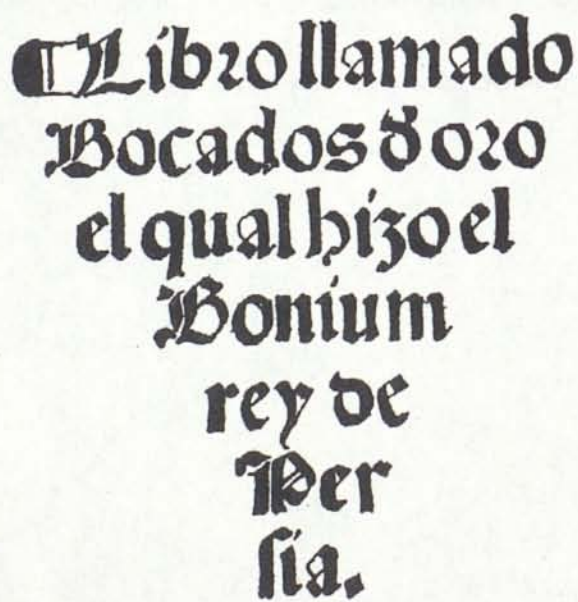 ¶ Libro llamado
Bocados d̓ oro
el qual hizo el
Bonium
rey de
Per
sia.